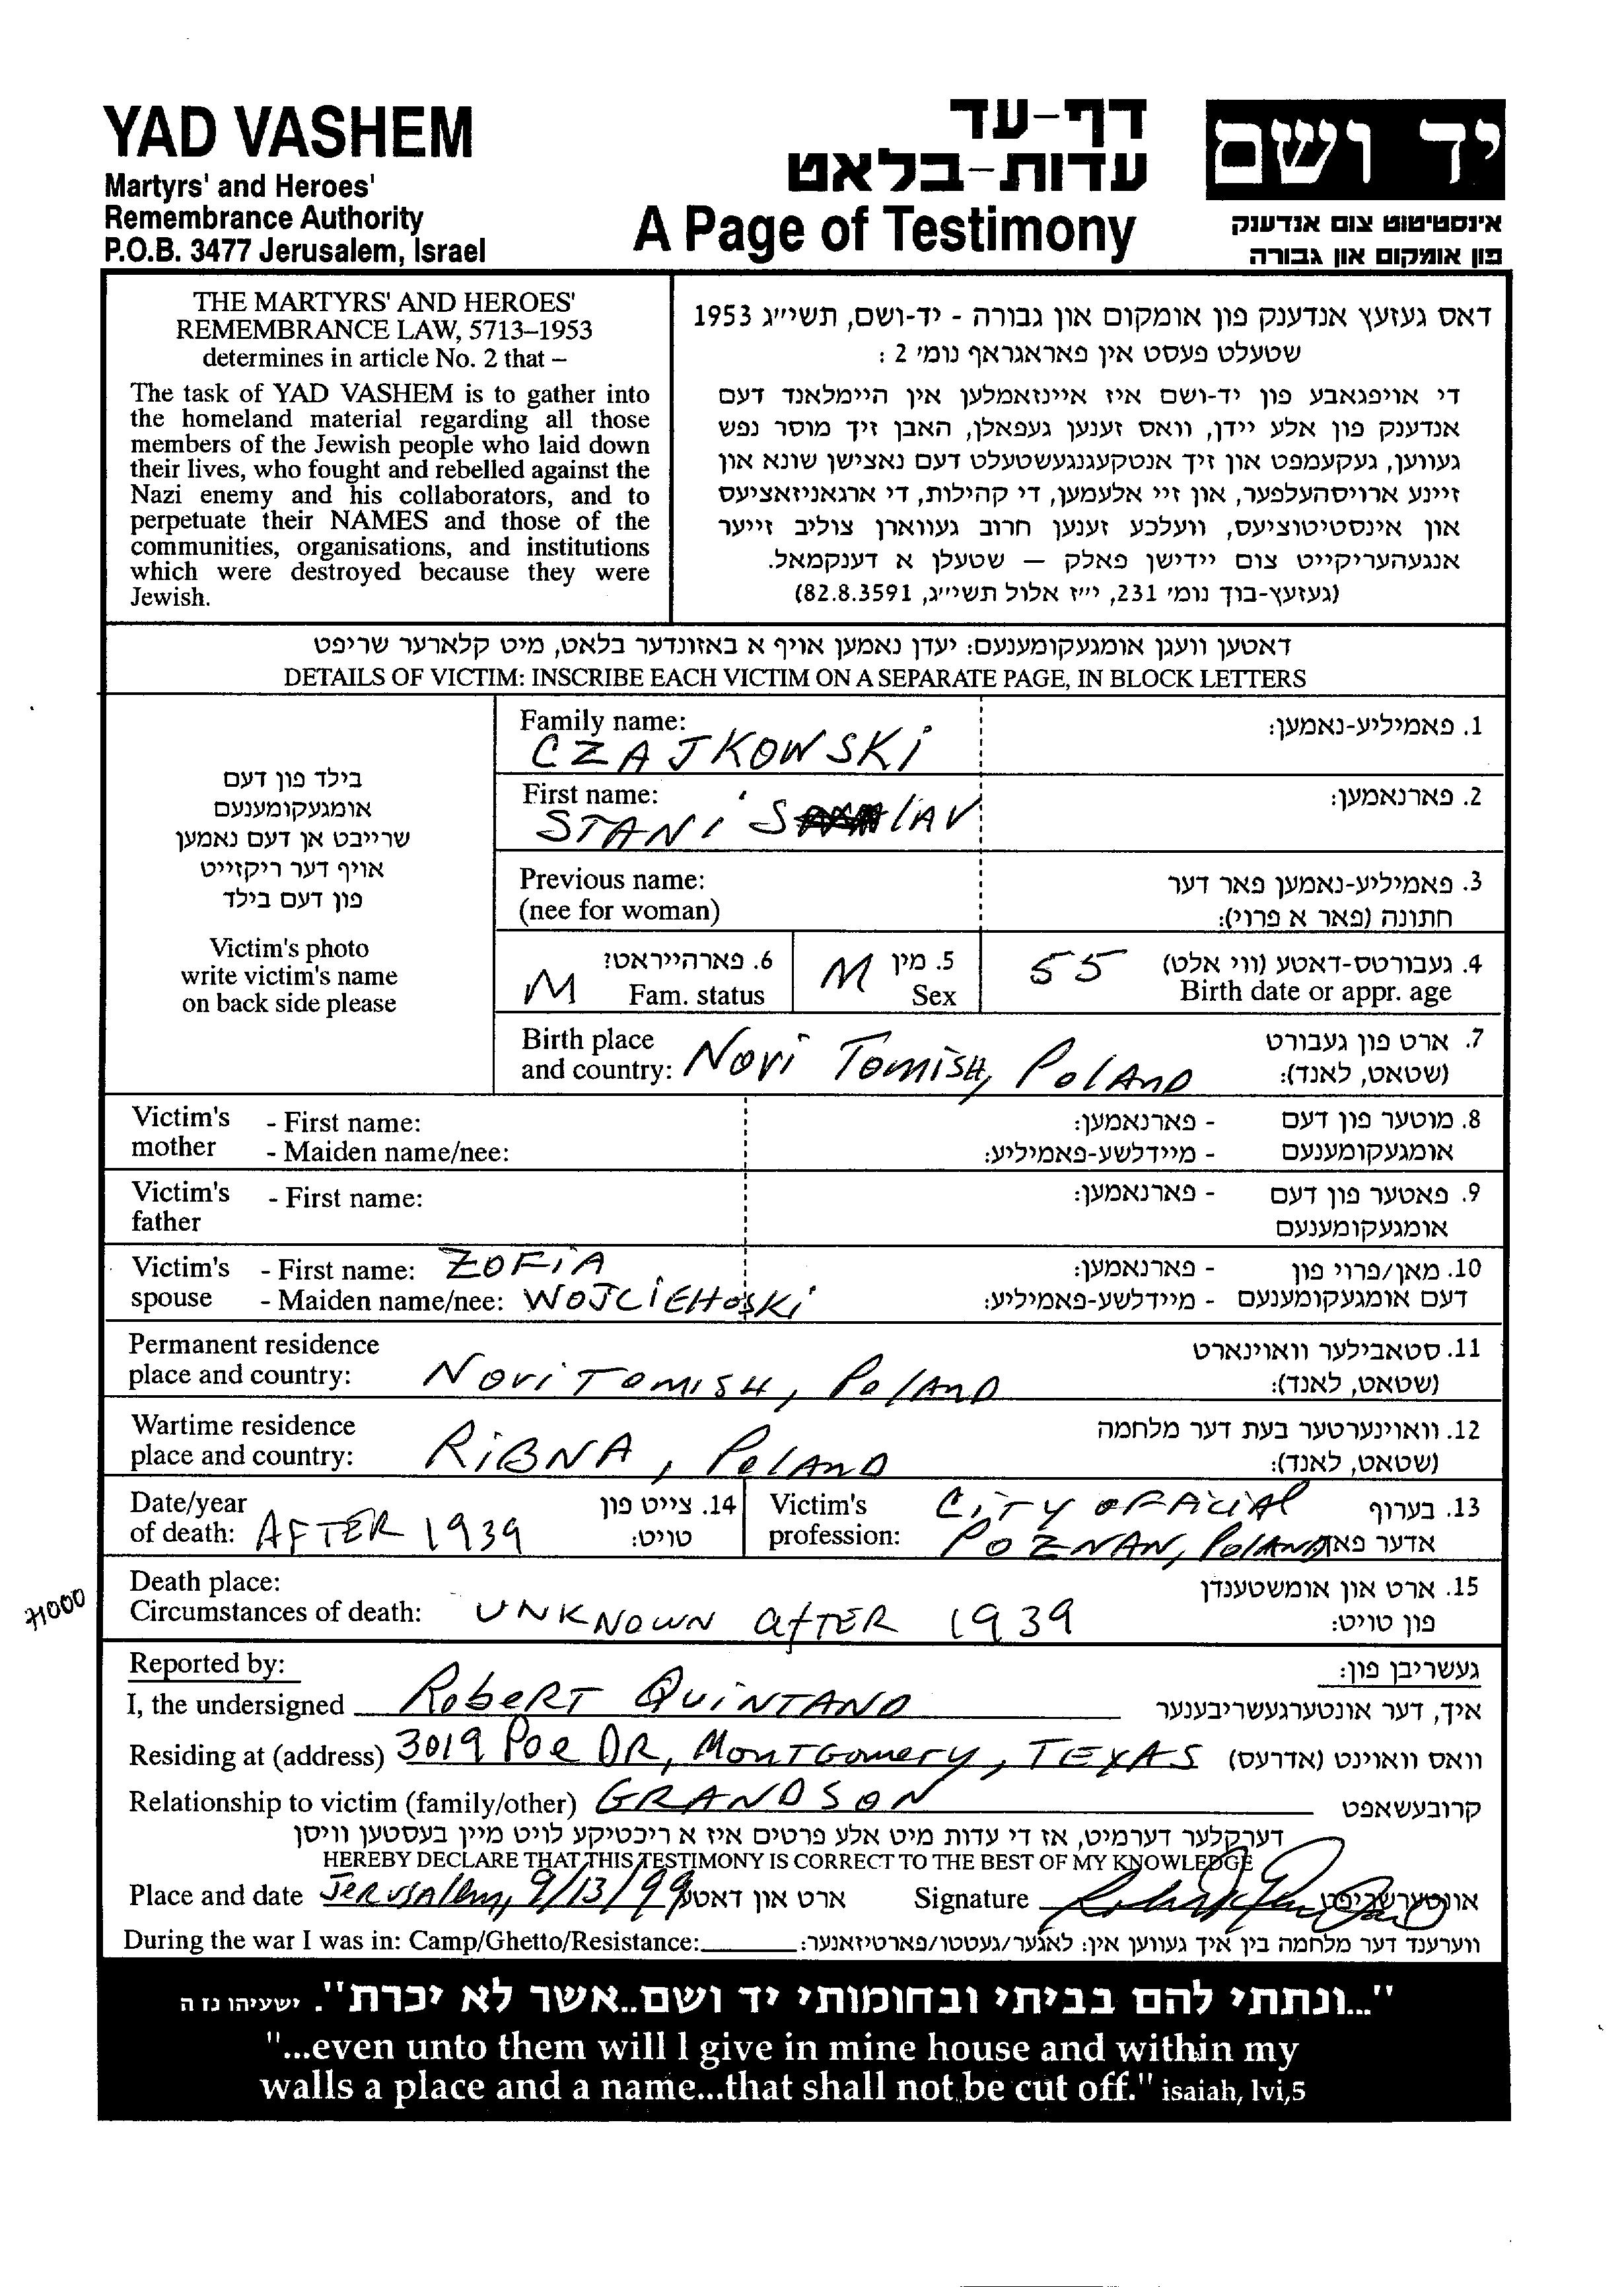 YAD VASHEM
Martyrs' and Heroes'
Remembrance Authority
P.O.B. 3477 Jerusalem, Israel
דף-עד
עדות-בלאט
A Page of Testimony
יד ושם
אינסטיטוט צום אנדענק
פון אומקום און גבורה
THE MARTYRS' AND HEROES'
REMEMBRANCE LAW, 5713–1953
determines in article No. 2 that –
The task of YAD VASHEM is to gather into
the homeland material regarding all those
members of the Jewish people who laid down
their lives, who fought and rebelled against the
Nazi enemy and his collaborators, and to
perpetuate their NAMES and those of the
communities, organisations, and institutions
which were destroyed because they were
Jewish.
דאס געזעץ אנדענק פון אומקום און גבורה - יד-ושם, תשי״ג 1953
שטעלט פעסט אין פאראגראף נומ׳ 2 :
די אויפגאבע פון יד-ושם איז איינזאמלען אין היימלאנד דעם
אנדענק פון אלע יידן, וואס זענען געפאלן, האבן זיך מוסר נפש
געווען, געקעמפט און זיך אנטקעגנגעשטעלט דעם נאצישן שונא און
זיינע ארויסהעלפער, און זיי אלעמען, די קהילות, די ארגאניזאציעס
און אינסטיטוציעס, וועלכע זענען חרוב געווארן צוליב זייער
אנגעהעריקייט צום יידישן פאלק — שטעלן א דענקמאל.
(געזעץ-בוך נומ׳ 231, י״ז אלול תשי״ג, 82.8.3591)
דאטען וועגן אומגעקומענעם: יעדן נאמען אויף א באזונדער בלאט, מיט קלארער שריפט
DETAILS OF VICTIM: INSCRIBE EACH VICTIM ON A SEPARATE PAGE, IN BLOCK LETTERS
בילד פון דעם
אומגעקומענעם
שרייבט אן דעם נאמען
אויף דער ריקזייט
פון דעם בילד
Victim's photo
write victim's name
on back side please
Family name: CZAJKOWSKI 1. פאמיליע-נאמען:
First name: STANISLAV 2. פארנאמען:
Previous name: 3. פאמיליע-נאמען פאר דער
(nee for woman) חתונה (פאר א פרוי):
M 6. פארהייראט? M 5. מין 55 4. געבורטס-דאטע (ווי אלט)
Fam. status Sex Birth date or appr. age
Birth place 7. ארט פון געבורט
and country: Novi Tomish, Poland (שטאט, לאנד):
Victim's - First name: - פארנאמען: 8. מוטער פון דעם
mother - Maiden name/nee: - מיידלשע-פאמיליע: אומגעקומענעם
Victim's - First name: - פארנאמען: 9. פאטער פון דעם
father אומגעקומענעם
Victim's - First name: ZOFiA - פארנאמען: 10. מאן/פרוי פון
spouse - Maiden name/nee: WOJCIEHOSKI - מיידלשע-פאמיליע: דעם אומגעקומענעם
Permanent residence 11. סטאבילער וואוינארט
place and country: Novi Tomish, Poland (שטאט, לאנד):
Wartime residence 12. וואוינערטער בעת דער מלחמה
place and country: RiBNA, Poland (שטאט, לאנד):
Date/year 14. צייט פון Victim's CITY OFFICIAL 13. בערוף
of death: AFTER 1939 טויט: profession: POZNAN, Poland אדער פאך
71000
Death place: 15. ארט און אומשטענדן
Circumstances of death: UNKNOWN AFTER 1939 פון טויט:
Reported by: געשריבן פון:
I, the undersigned Robert Quintano איך, דער אונטערגעשריבענער
Residing at (address) 3019 Poe DR, Montgomery, TEXAS וואס וואוינט (אדרעס)
Relationship to victim (family/other) GRANDSON קרובעשאפט
דערקלער דערמיט, אז די עדות מיט אלע פרטים איז א ריכטיקע לויט מיין בעסטען וויסן
HEREBY DECLARE THAT THIS TESTIMONY IS CORRECT TO THE BEST OF MY KNOWLEDGE
Place and date Jerusalem, 9/13/99 ארט און דאטע Signature אונטערשריפט
During the war I was in: Camp/Ghetto/Resistance: ווערענד דער מלחמה בין איך געווען אין: לאגער/געטטו/פארטיזאנער:
"...ונתתי להם בביתי ובחומותי יד ושם..אשר לא יכרת". ישעיהו נז ה
"...even unto them will I give in mine house and within my
walls a place and a name...that shall not be cut off." isaiah, lvi,5